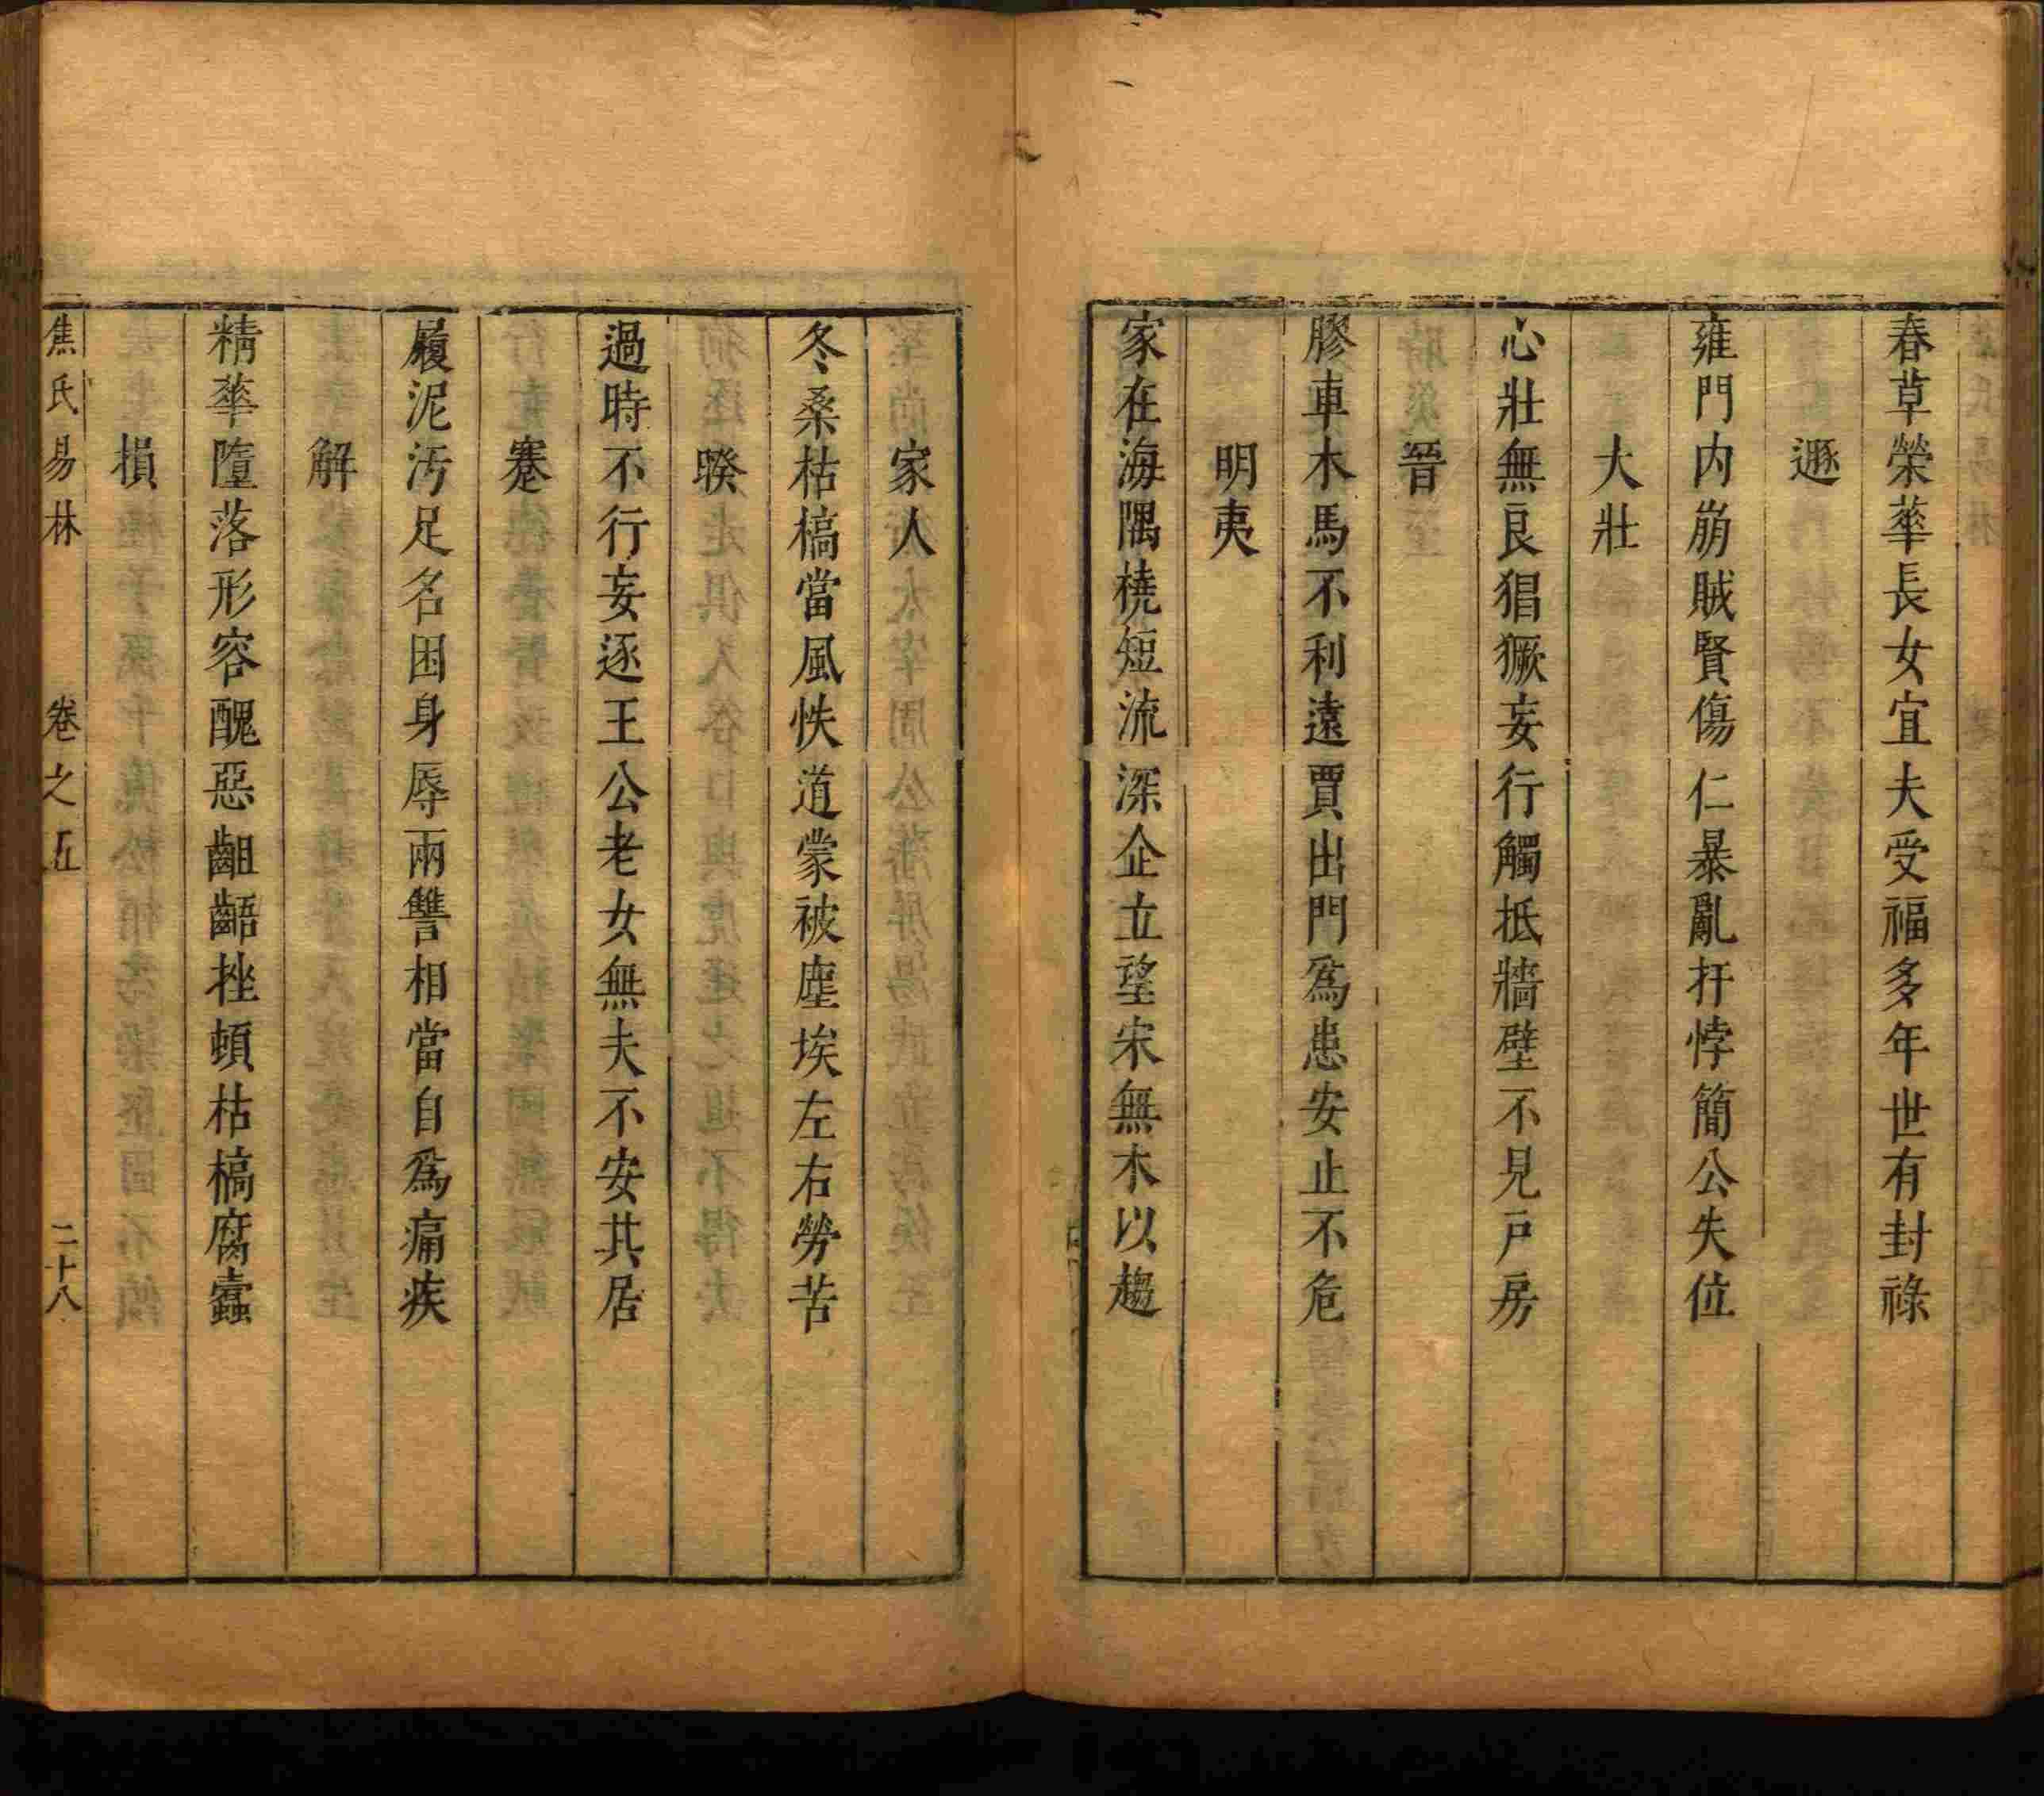 春草榮華長女宜夫受福多年世有封祿
遯
雍門内崩賊賢傷仁暴亂扞悖簡公失位
大壯
心壯無良猖獗妄行觸抵牆壁不見戸房
晉
膠車木馬不利遠賈出門爲患安止不危
明夷
家在海隅橈短流深企立望宋無木以趨
家人
冬桑枯槁當風怢道蒙被塵埃左右勞苦
睽
過時不行妄逐王公老女無夫不安其居
蹇
履泥汚足名困身辱兩讐相當自爲痛疾
解
精華墮落形容醜惡齟齬挫頓枯槁腐蠹
損
焦氏易林 卷之五 二十八